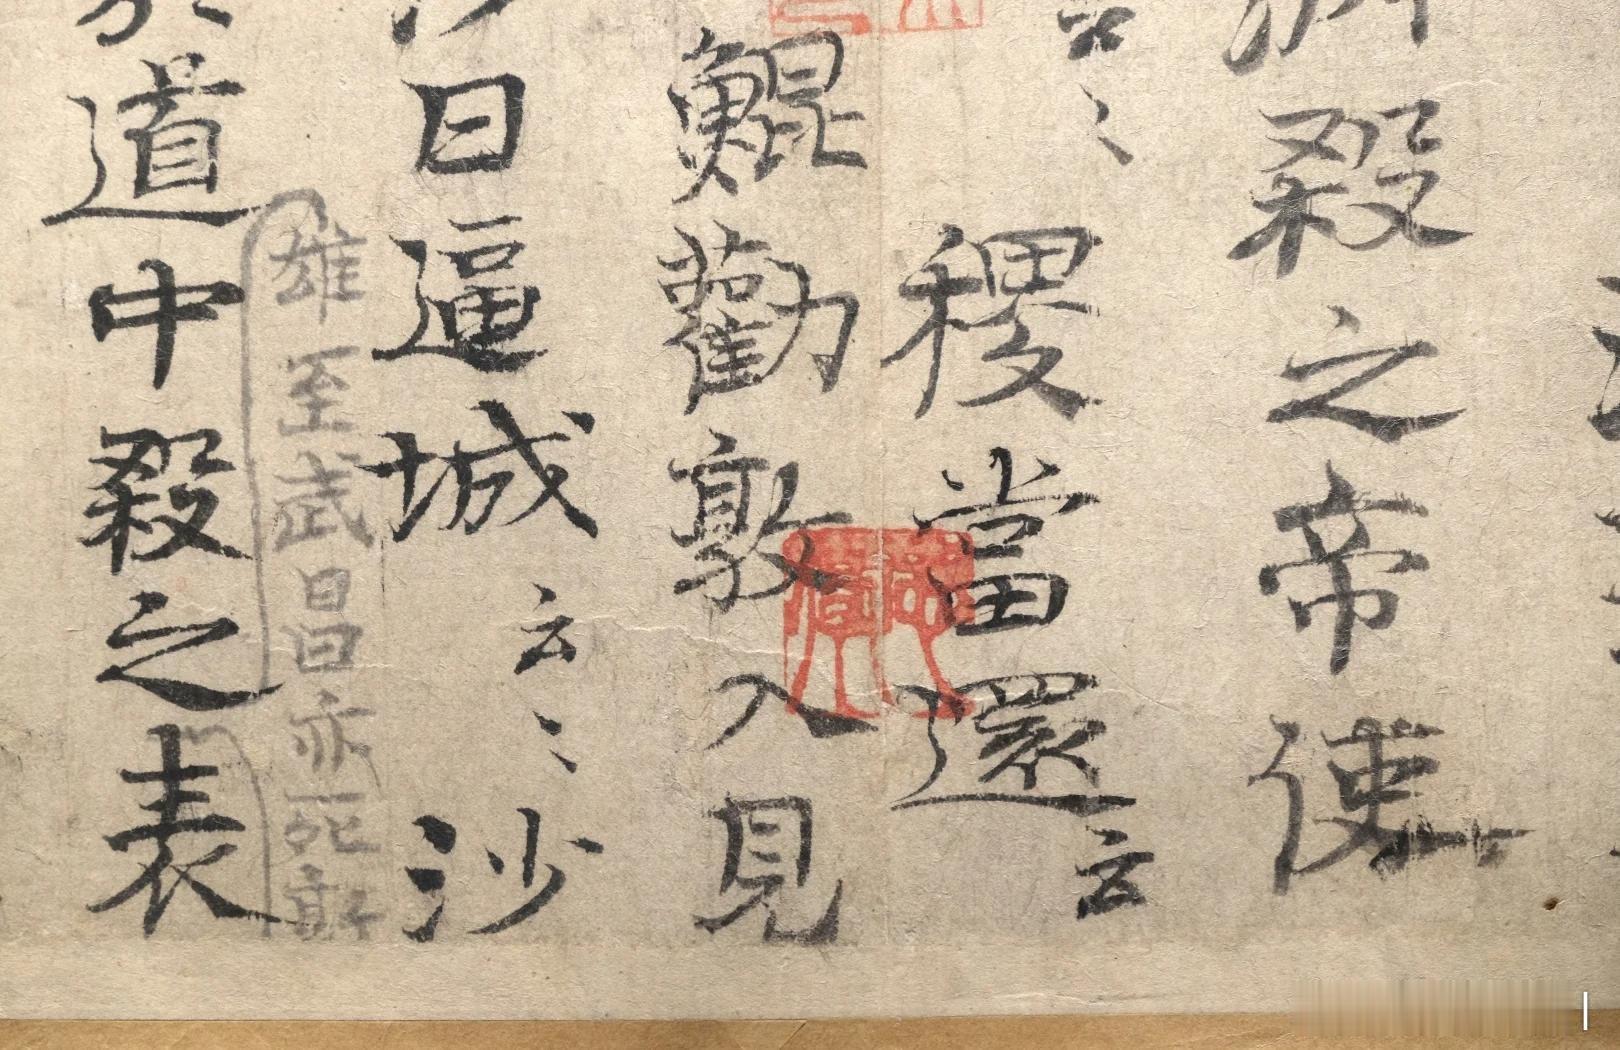 殺之帝使
云〻
稷當還云
鯤勸敦入見
日逼城云〻沙
雄至武昌亦死
道中殺之表